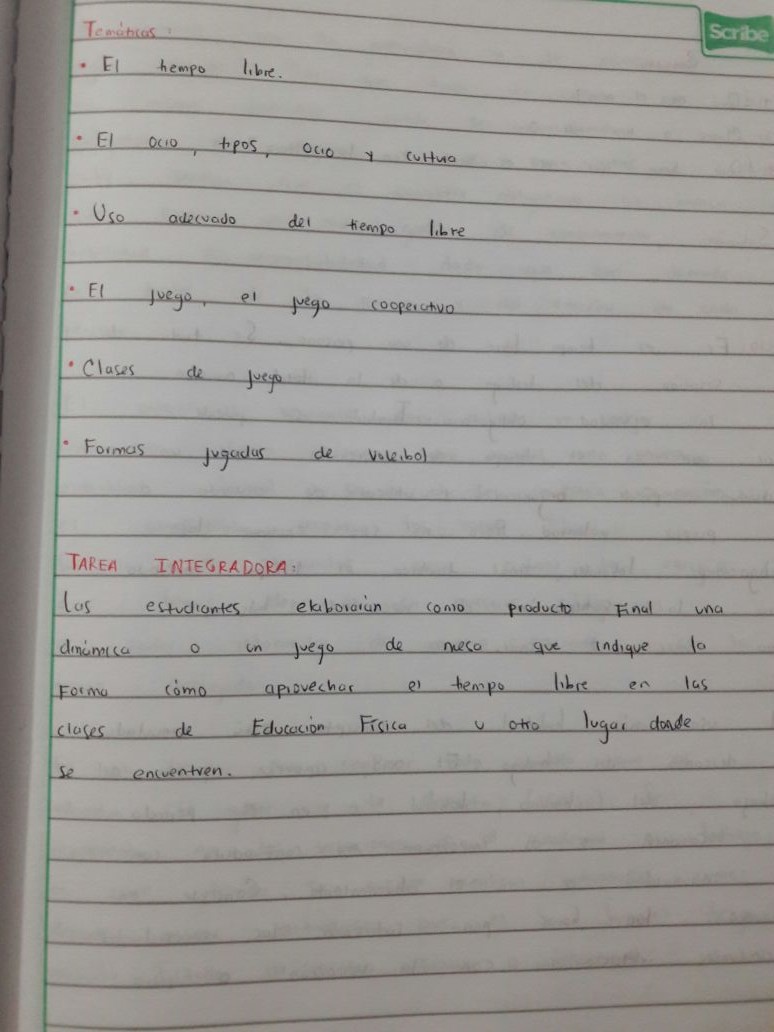 Scribe
Temáticas:
• El tiempo libre.
• El ocio, tipos, ocio y cultura
• Uso adecuado del tiempo libre
• El juego, el juego cooperativo
• Clases de juego
• Formas jugadas de voleibol
TAREA INTEGRADORA:
Los estudiantes elaborarán como producto Final una
dinámica o un juego de mesa que indique la
Forma cómo aprovechar el tiempo libre en las
clases de Educación Física u otro lugar donde
se encuentren.